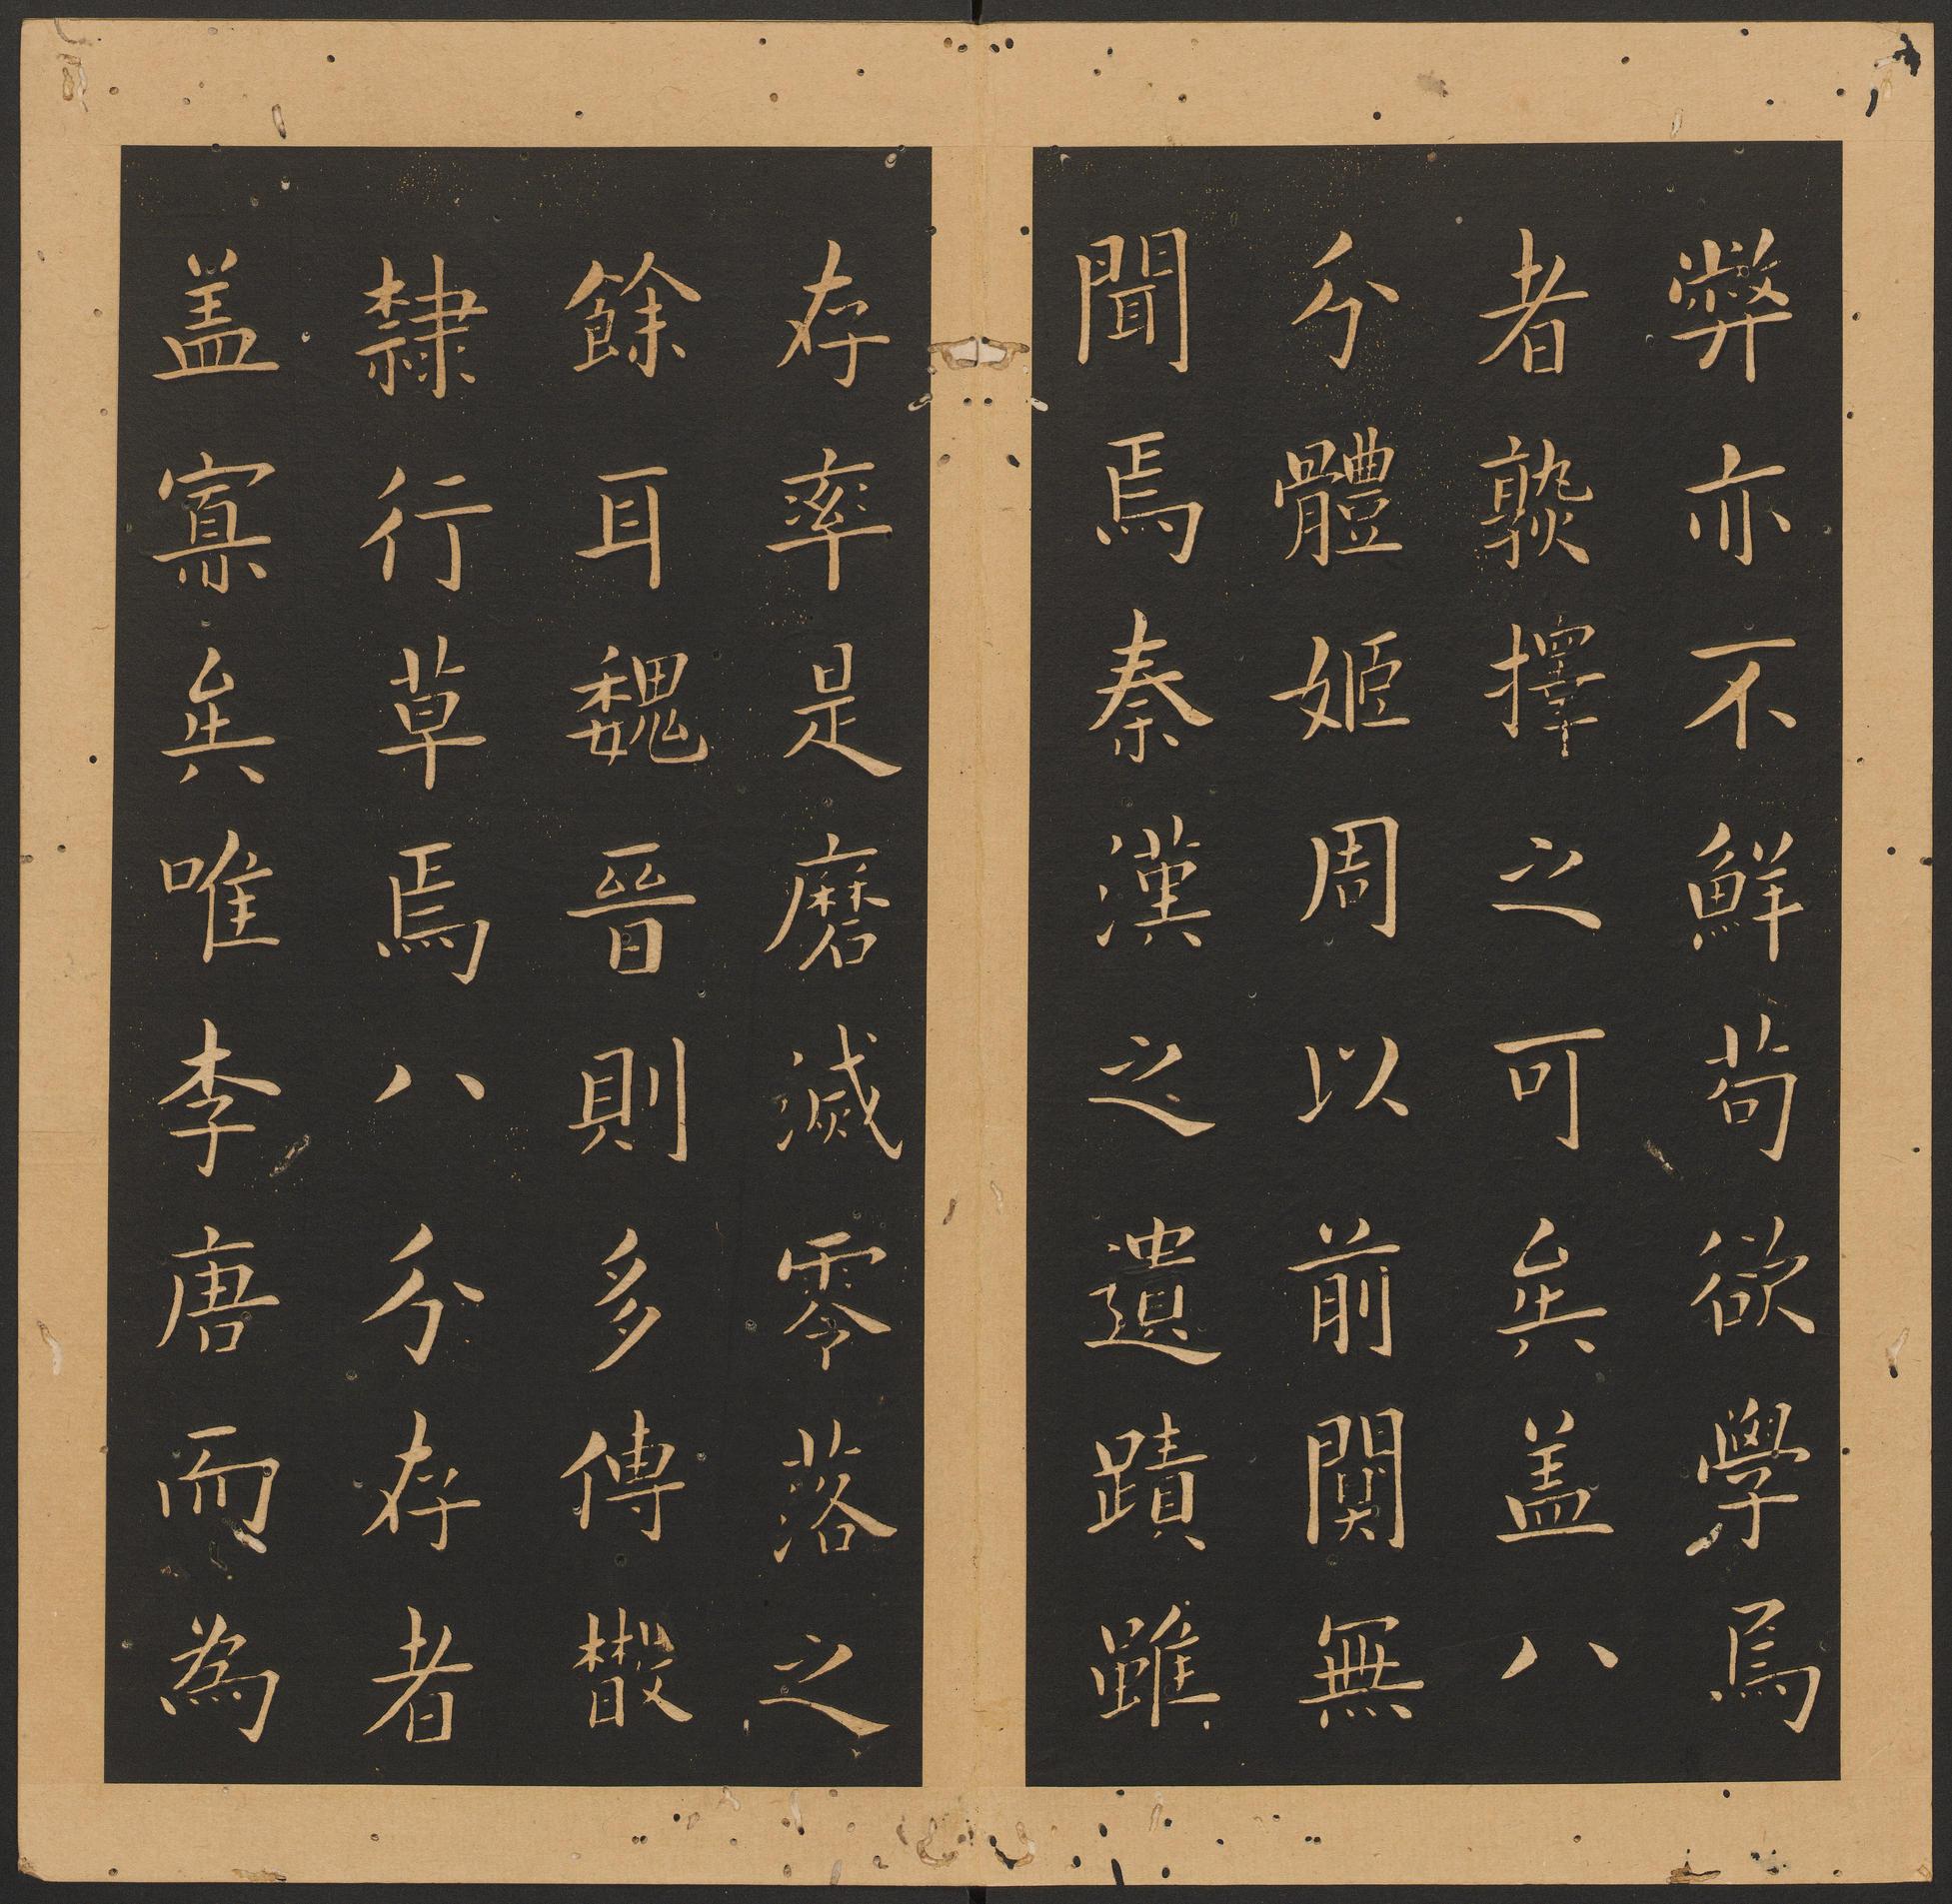 弊亦不鮮苟欲學焉
者孰擇之可矣盖八
分體姬周以前闃無
聞焉秦漢之遺蹟雖
存率是磨滅零落之
餘耳魏晉則多傳
隸行草焉八分存者
盖寡矣唯李唐而為